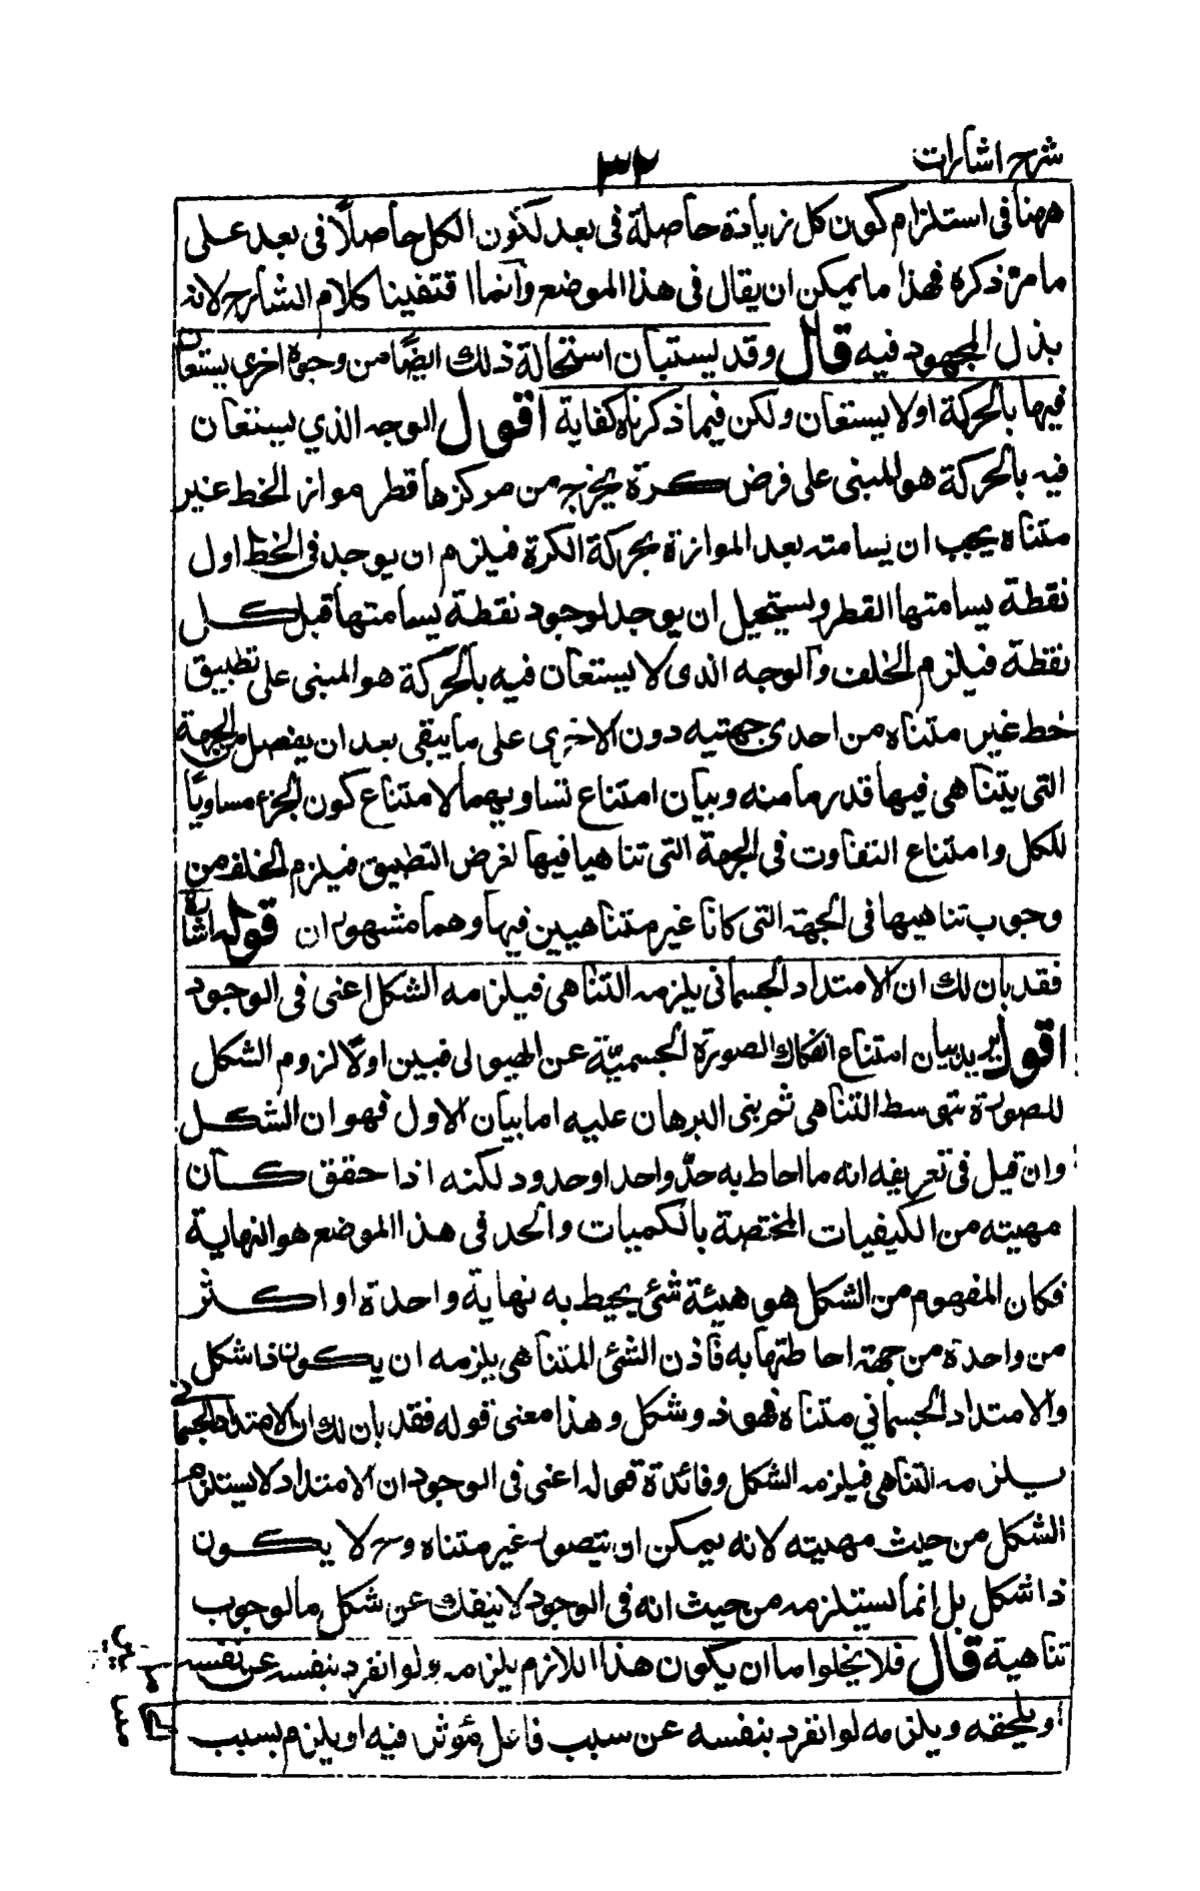 شرح اشارات
٣٢
ههنا فى استلزام كون كل زيادة حاصلة فى بعد لكون الكل حاصلًا فى بعد على
ما مرّ ذكره فهذا ما يمكن ان يقال فى هذا الموضع وانما اقتفينا كلام الشارح لانه
بذل المجهود فيه قال وقد يستبان استحالة ذلك ايضًا من وجوه اخرى يستعان
فيها بالحركة او لا يستعان ولكن فيما ذكرناه كفاية اقول الوجه الذي يستعان
فيه بالحركة هو المبنى على فرض كرة يخرج من مركزها قطر مواز لخط غير
متناه يجب ان يسامته بعد الموازة بحركة الكرة فيلزم ان يوجد فى الخط اول
نقطة يسامتها القطر ويستحيل ان يوجد لوجود نقطة يسامتها قبل كل
نقطة فيلزم الخلف والوجه الذى لا يستعان فيه بالحركة هو المبنى على تطبيق
خط غير متناه من احدى جهتيه دون الاخرى على ما يبقى بعد ان يفصل من الجهة
التى يتناهى فيها قدر ما منه وبيان امتناع تساويهما لامتناع كون الجزء مساويًا
للكل وامتناع التفاوت فى الجهة التى تناهيا فيها لفرض التطبيق فيلزم الخلف من
وجوب تناهيها فى الجهة التى كانا غير متناهيين فيها وهما مشهوران قوله اشارة
فقد بان لك ان الامتداد الجسمانى يلزمه التناهى فيلزمه الشكل اعنى فى الوجود
اقول يريد بيان امتناع انفكاك الصورة الجسميّة عن الهيولى فبين اولًا لزوم الشكل
للصورة بتوسط التناهى ثم بنى البرهان عليه اما بيان الاول فهو ان الشكل
وان قيل فى تعريفه انه ما احاط به حدّ واحد او حدود لكنه اذا حقق كان
مهيته من الكيفيات المختصة بالكميات والحد فى هذا الموضع هو النهاية
فكان المفهوم من الشكل هو هيئة شئ يحيط به نهاية واحدة او اكثر
من واحدة من جهة احاطتها به فاذن الشئ المتناهى يلزمه ان يكون ذا شكل
والامتداد الجسماني متناه فهو ذو شكل وهذا معنى قوله فقد بان لك ان الامتداد الجسمانى
يلزمه التناهى فيلزمه الشكل وفائدة قوله اعنى فى الوجود ان الامتداد لا يستلزم
الشكل من حيث مهيته لانه يمكن ان يتصور غير متناه وح لا يكون
ذا شكل بل انما يستلزمه من حيث انه فى الوجود لا ينفك عن شكل ما لوجوب
تناهية قال فلا يخلوا ما ان يكون هذا اللازم يلزمه ولو انفرد بنفسه عن نفسه
او يلحقه ويلزمه لو انفرد بنفسه عن سبب فاعل مؤثر فيه او يلزم بسبب